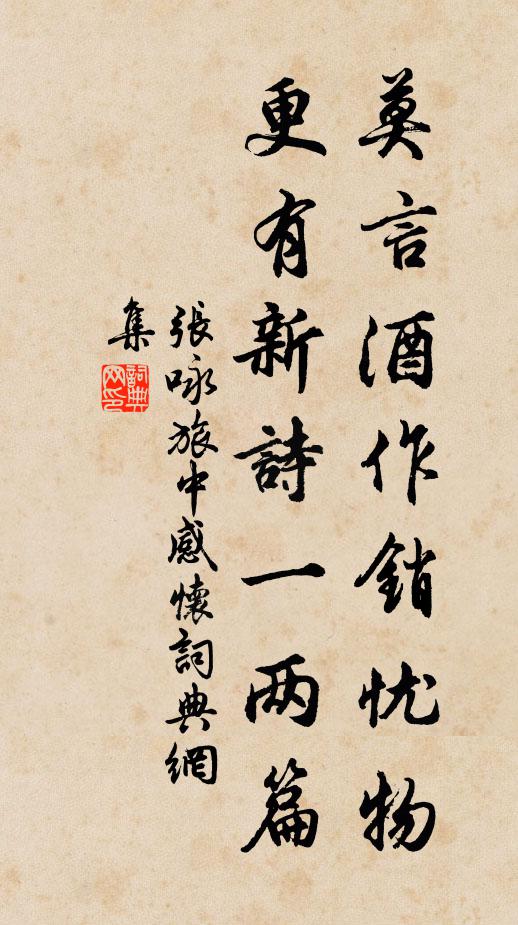 莫言酒作銷忧物
更有新詩一两篇
張咏旅中感懷詞典網
集
詞典
网印